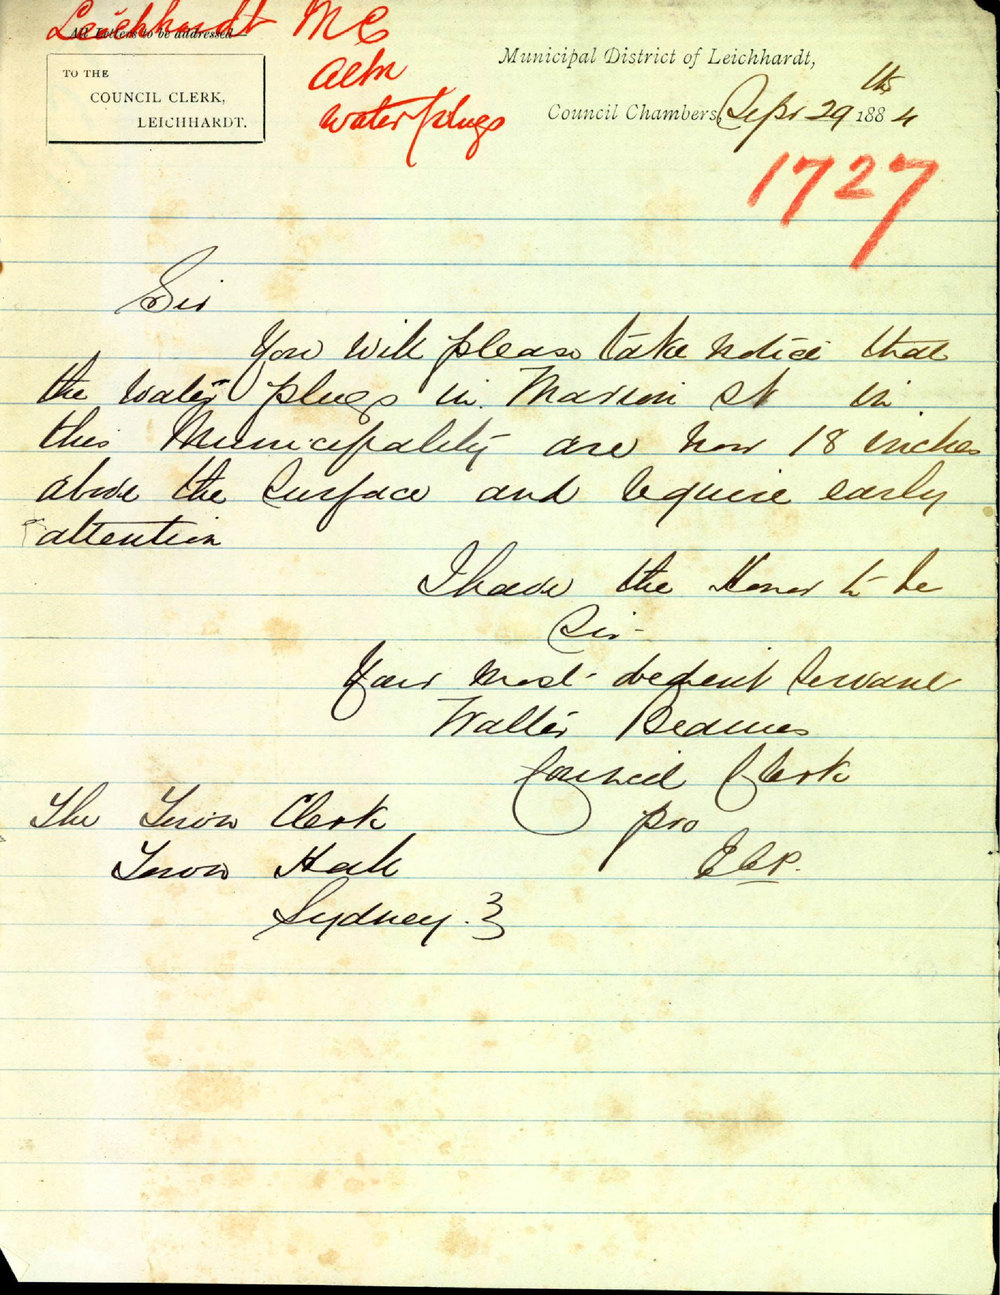 Leichhardt M C
All Letters to be addressed—
TO THE
COUNCIL CLERK,
LEICHHARDT.
water plugs
Municipal District of Leichhardt,
Council Chambers, Sepr 29th 1884
1727
Sir
You will please take notice that
the water plugs in Marion St in
this Municipality are now 18 inches
above the Surface and require early
attention
I have the Honor to be
Sir
Your most obedient Servant
Walter Beames
Council Clerk
pro
The Town Clerk
Town Hall
Sydney.